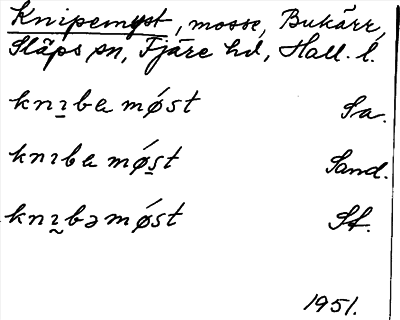 Knipemyst, mosse, Bukärr,
Släps sn, Fjäre hd, Hall. l.
knɪ̠ba mǿst Sa.
knɪba mǿs̠t Sand.
knɪ̰bə mǿst St.
1951.